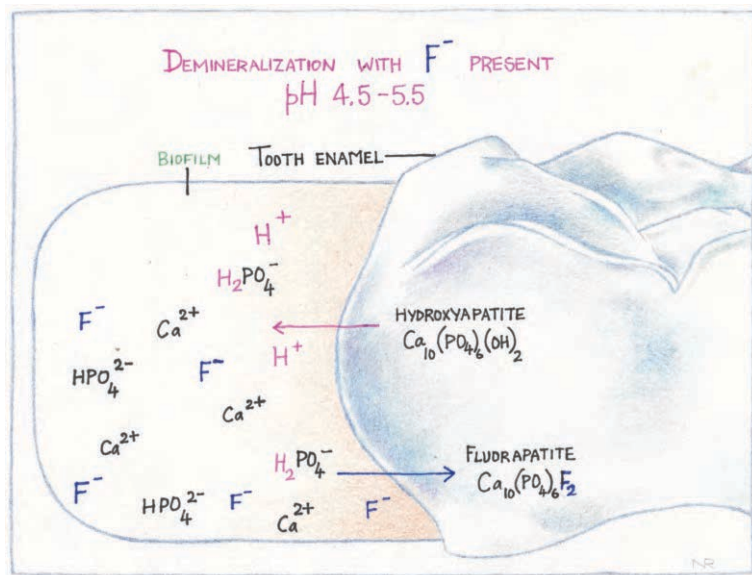 DEMINERALIZATION WITH F⁻ PRESENT
pH 4.5-5.5
BIOFILM
TOOTH ENAMEL
H⁺
H₂PO₄⁻
F⁻
Ca²⁺
HYDROXYAPATITE
Ca₁₀(PO₄)₆(OH)₂
H⁺
HPO₄²⁻
F⁻
Ca²⁺
Ca²⁺
H₂PO₄⁻
FLUORAPATITE
Ca₁₀(PO₄)₆F₂
F⁻
HPO₄²⁻
F⁻
Ca²⁺
F⁻